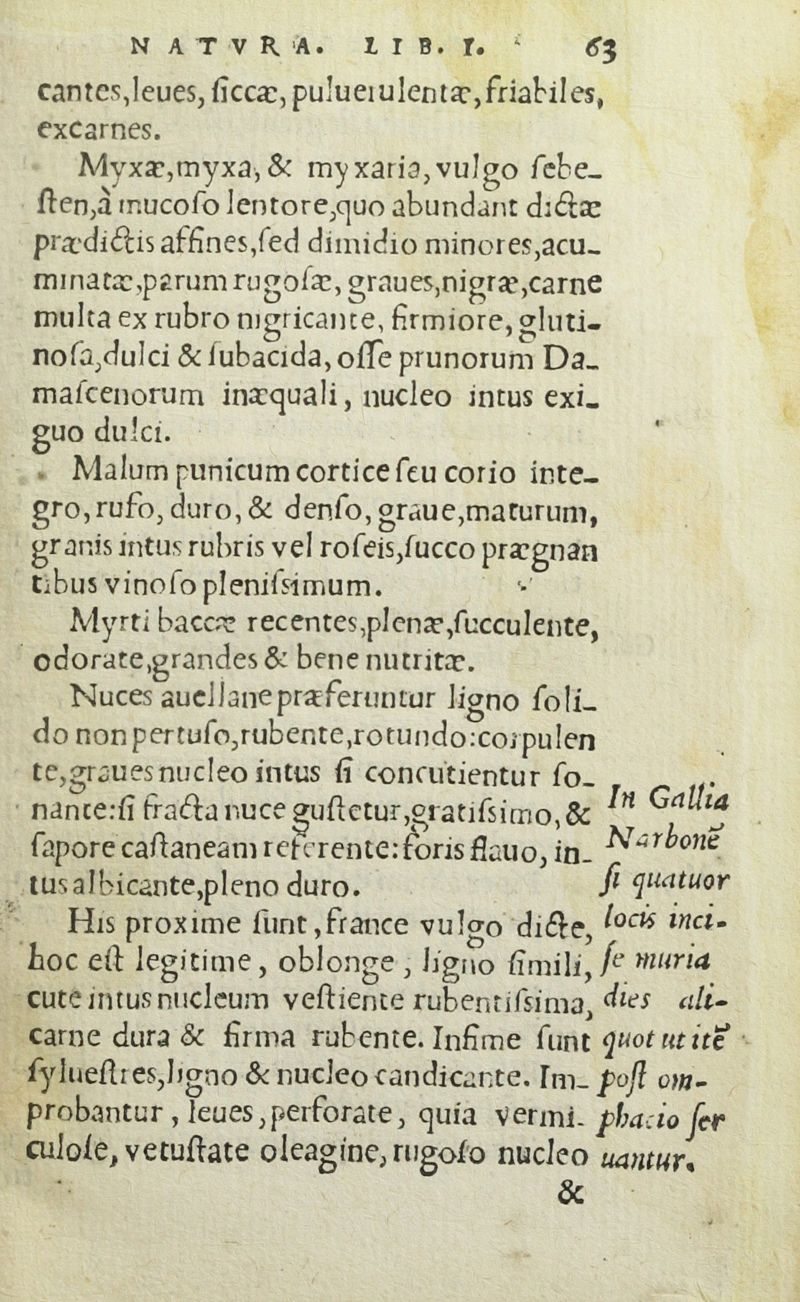 NATVRA. LIB. I. 63
cantes,leues, ſiccæ, puluerulentæ,friabiles,
excarnes.
Myxæ,myxa, & myxaria, vulgo ſebe-
ſten,à mucoſo lentore,quo abundant dictæ
prædictis affines,ſed dimidio minores,acu-
minatæ,parum rugoſæ, graues,nigræ,carne
multa ex rubro nigricante, firmiore, gluti-
noſa,dulci & ſubacida, oſſe prunorum Da-
maſcenorum inæquali, nucleo intus exi-
guo dulci.
Malum punicum cortice ſeu corio inte-
gro, rufo, duro, & denſo, graue,maturum,
granis intus rubris vel roſeis,ſucco prægnan
tibus vinoſo pleniſsimum.
Myrti baccæ recentes,plenæ,ſucculente,
odorate,grandes & bene nutritæ.
Nuces auellane præferuntur ligno ſoli-
do non pertuſo,rubente,rotundo:corpulen
te,graues nucleo intus ſi concutientur ſo-
nante:ſi fracta nuce guſtetur,gratiſsimo, &
ſapore caſtaneam referente: foris flauo, in-
tus albicante,pleno duro.
His proxime ſunt, france vulgo dicte,
hoc eſt legitime, oblonge, ligno ſimili,
cute intus nucleum veſtiente rubentiſsima,
carne dura & firma rubente. Infime ſunt
ſylueſtres,ligno & nucleo candicante. Im-
probantur, leues, perforate, quia vermi-
culoſe, vetuſtate oleagine, rugoſo nucleo
&
In Gallia
Narbonē
ſi quatuor
locis inci-
ſe muria
dies ali-
quot ut itē
poſt om-
phacio ſer
uantur.